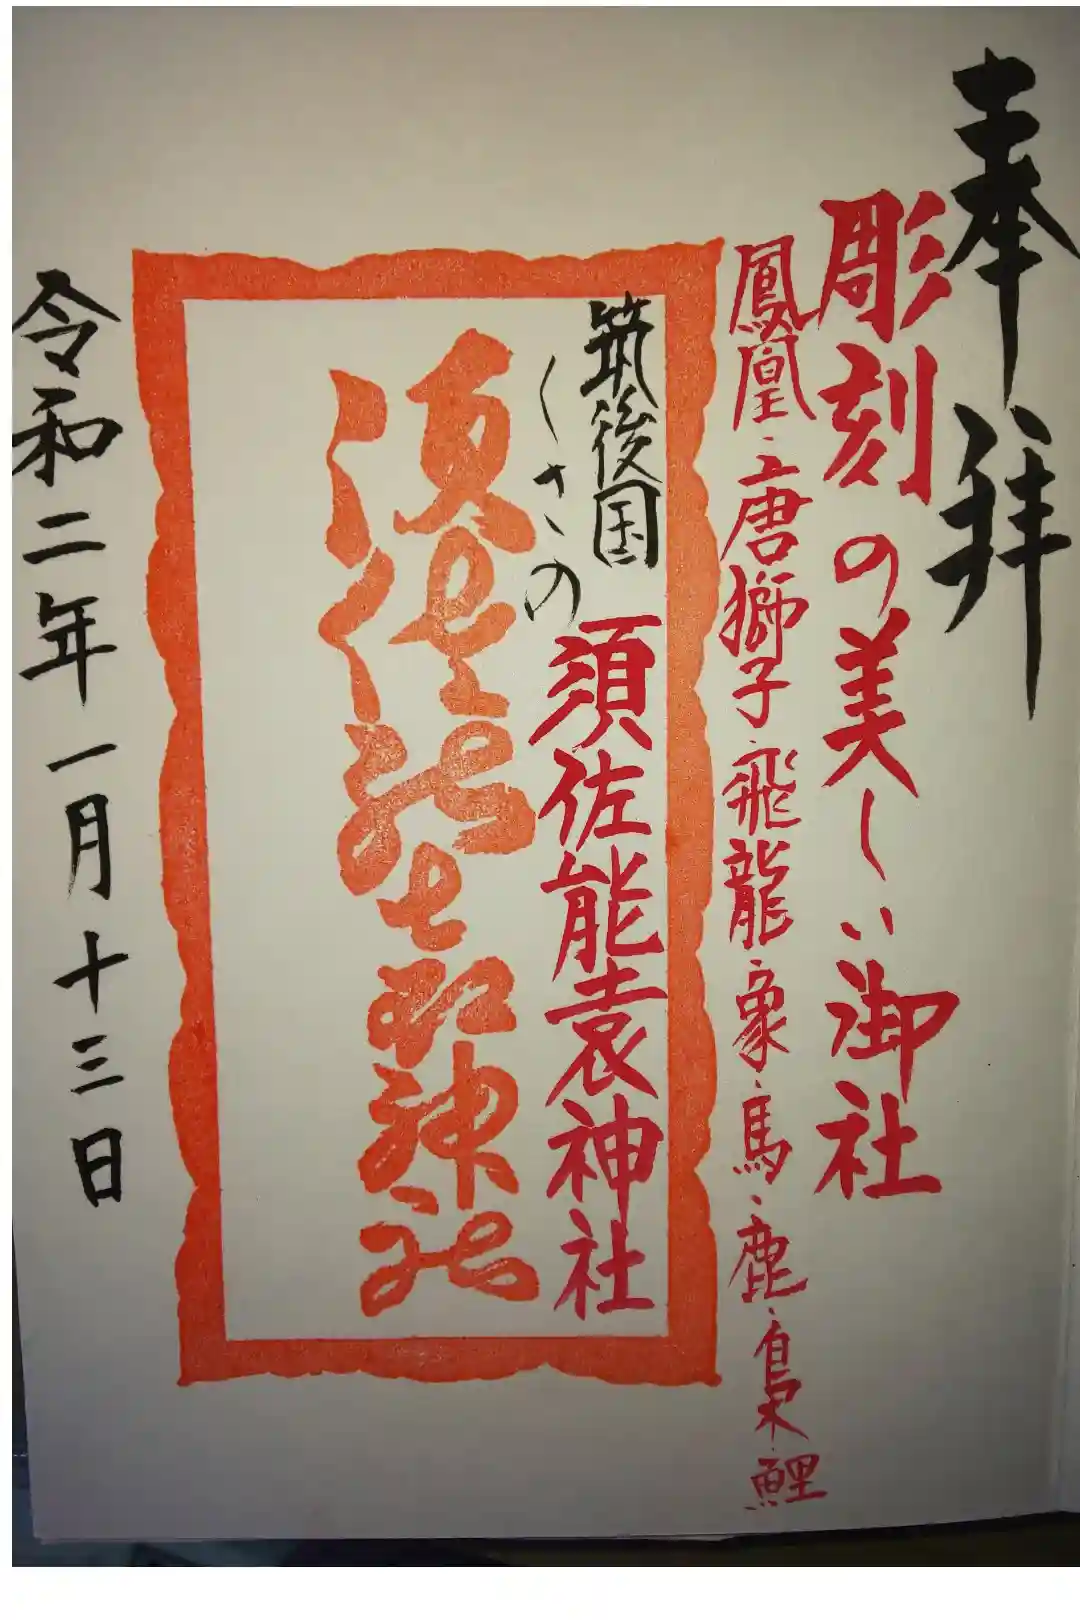 奉拝
彫刻の美しい御社
鳳凰、唐獅子、飛龍、象、馬、鹿、梟、鯉
筑後国
くさの
須佐能袁神社
令和二年一月十三日